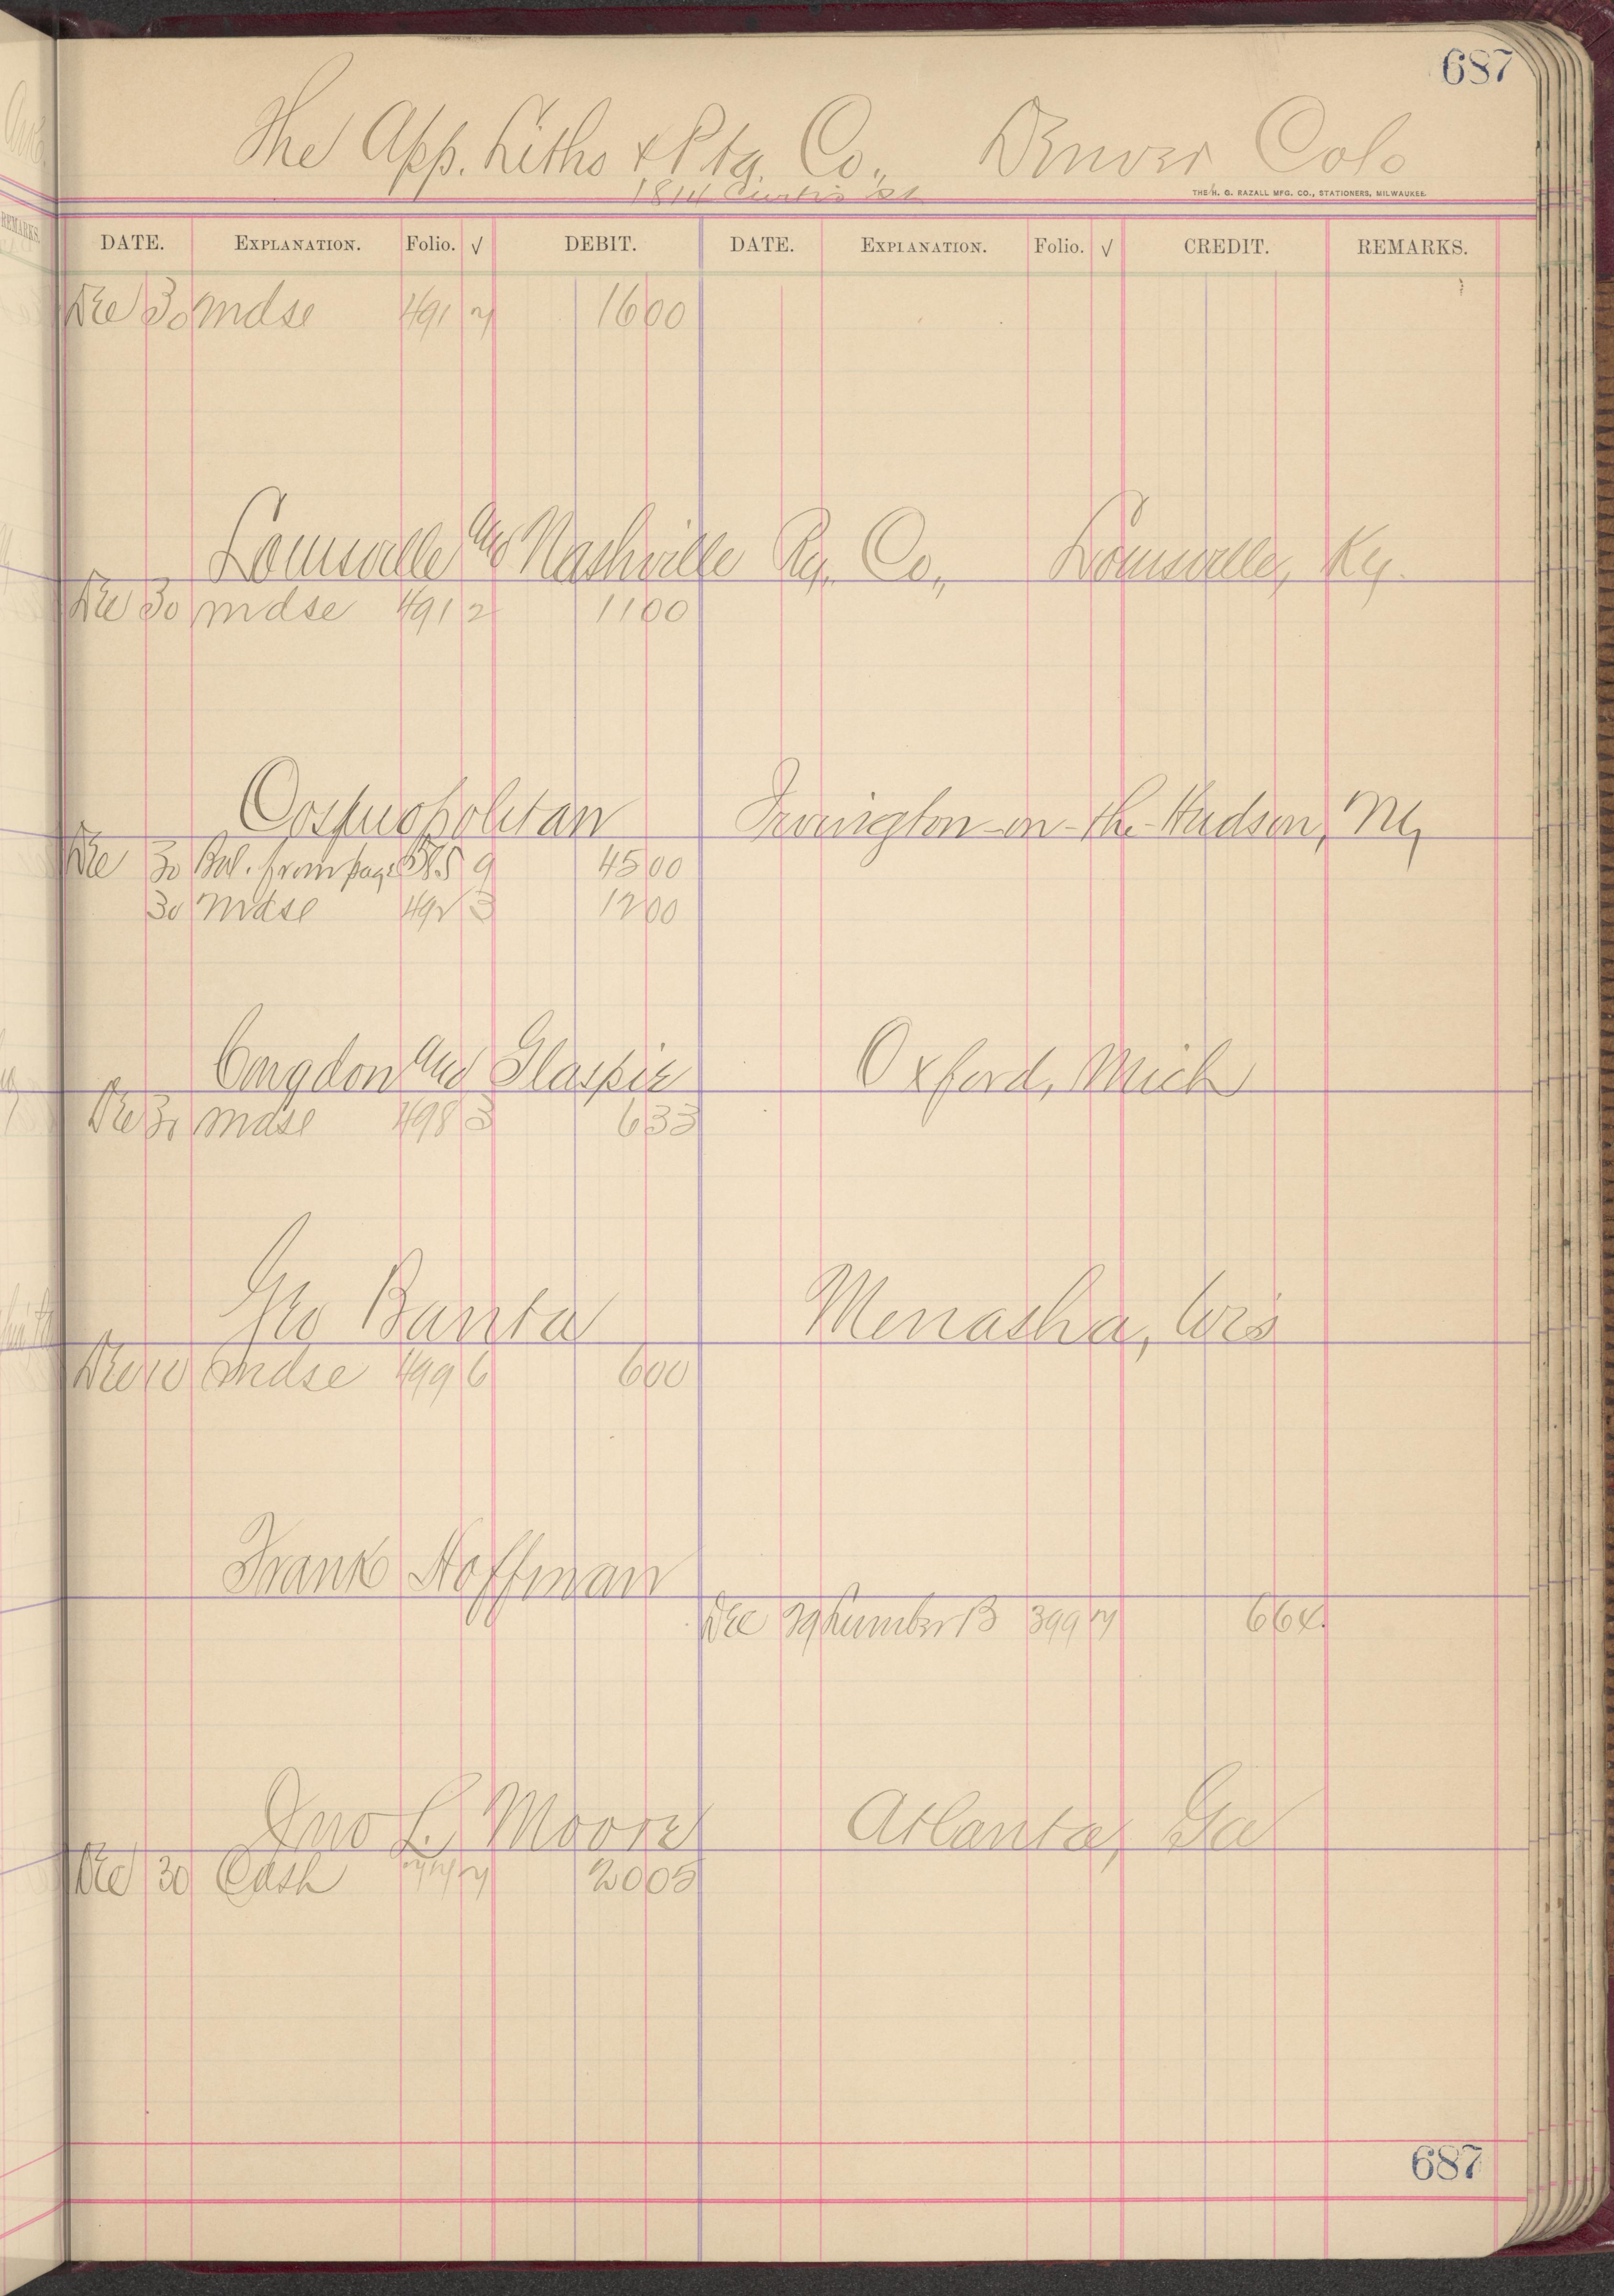 687
The App. Litho & Ptg. Co., Denver Colo
1814 Curtis St
THE H. G. RAZALL MFG. CO., STATIONERS, MILWAUKEE.
DATE. EXPLANATION. Folio. √ DEBIT. DATE. EXPLANATION. Folio. √ CREDIT. REMARKS.
Dec 30 mdse 491 7 16 00
Louisville and Nashville Ry. Co., Louisville, Ky.
Dec 30 mdse 491 2 11 00
Cosmopolitan Irvington-on-the-Hudson, NY
Dec 30 Bal. from page 585 9 45 00
30 mdse 492 3 12 00
Congdon and Glaspie Oxford, Mich
Dec 30 mdse 498 3 6 33
Geo Banta Menasha, Wis
Dec 10 mdse 499 6 6 00
Frank Hoffman
Dec 29 Lumber B 399 7 6 64
Jno L. Moore Atlanta, Ga
Dec 30 Cash 20 05
687